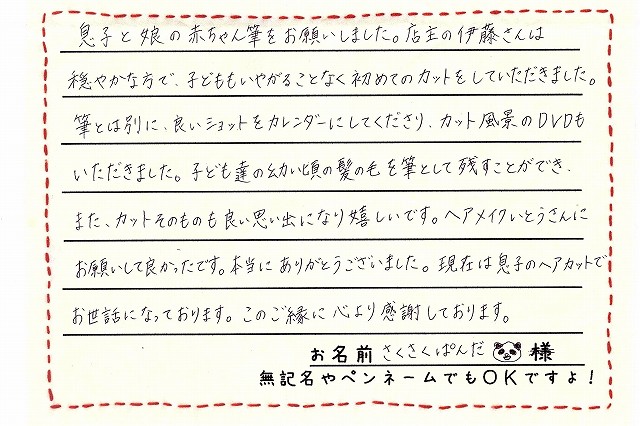 息子と娘の赤ちゃん筆をお願いしました。店主の伊藤さんは
穏やかな方で、子どももいやがることなく初めてのカットをしていただきました。
筆とは別に、良いショットをカレンダーにしてくださり、カット風景のDVDも
いただきました。子ども達の幼い頃の髪の毛を筆として残すことができ、
また、カットそのものも良い思い出になり嬉しいです。ヘアメイクいとうさんに
お願いして良かったです。本当にありがとうございました。現在は息子のヘアカットで
お世話になっております。このご縁に心より感謝しております。
お名前 さくさくぱんだ 様
無記名やペンネームでもOKですよ!